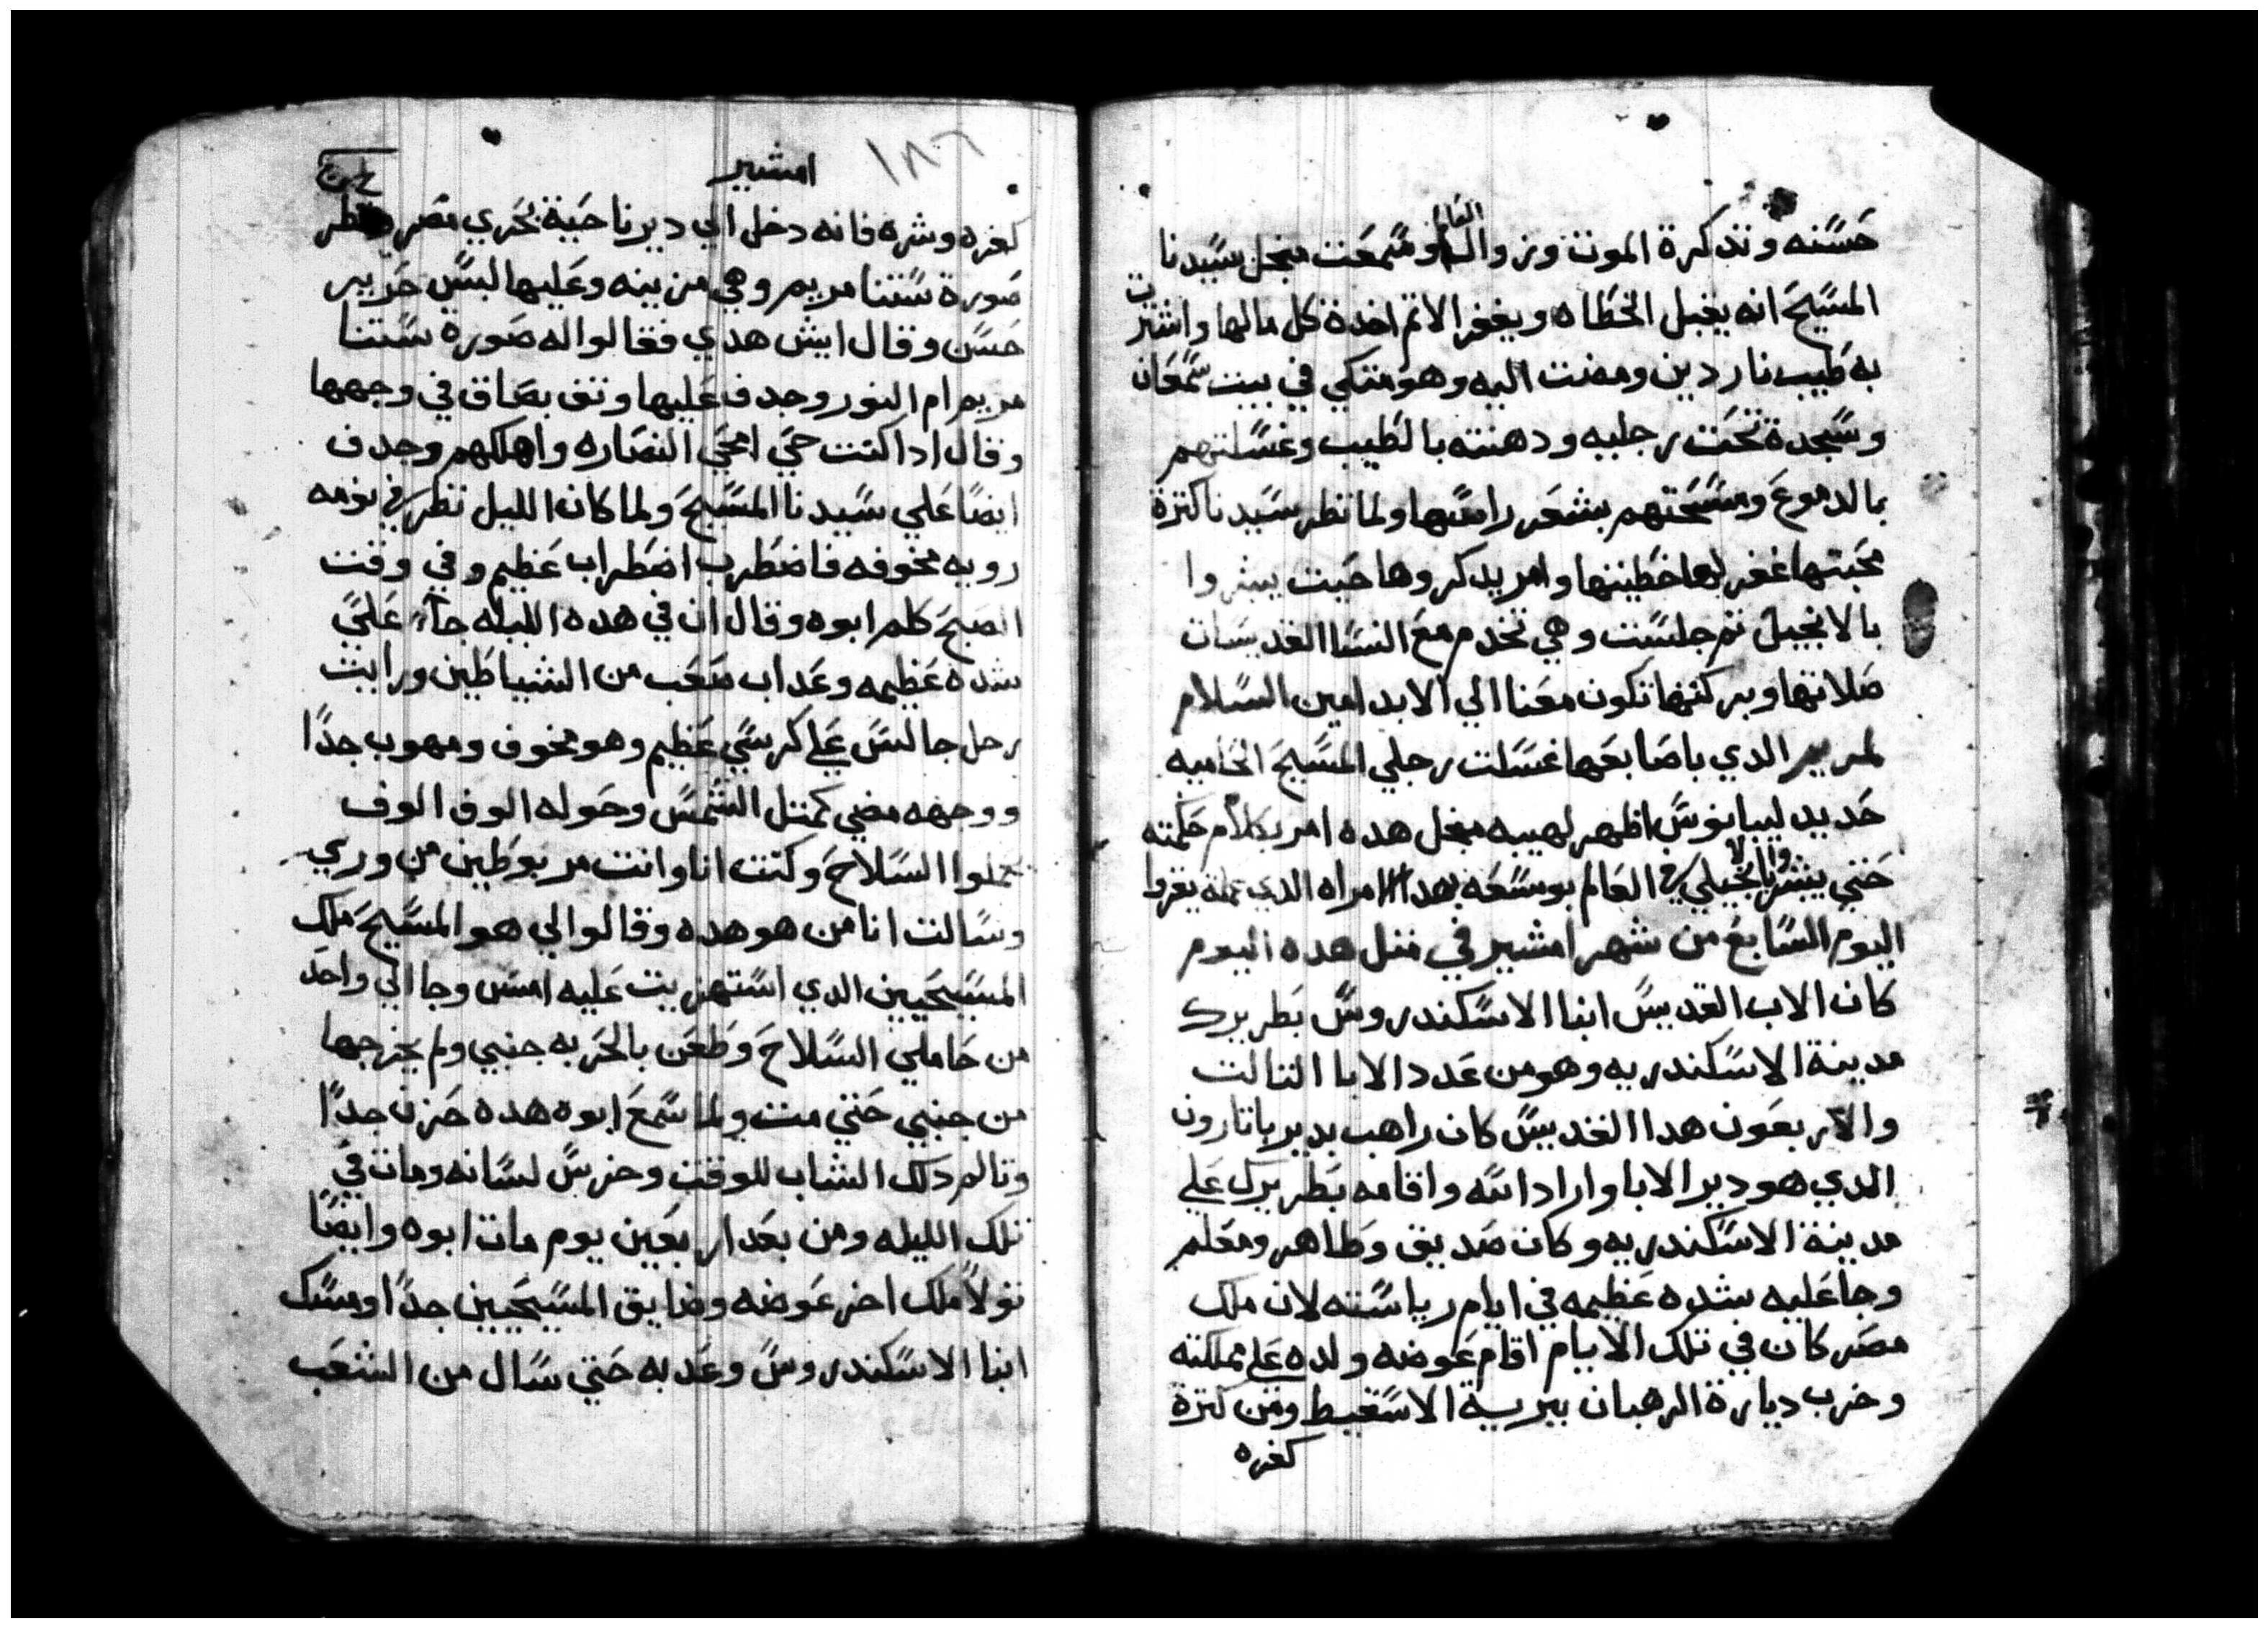 حسنه وتذكرة الموت وزوال العالم وسمعت منجل سيدنا
المسيح انه يقبل الخطاه ويغفر الاثم اخدة كل مالها واشترت
به طيب ناردين ومضت اليه وهو متكي في بيت سمعان
وسجدة تحت رجليه ودهنته بالطيب وغسلتهم
بالدموع ومسحتهم بشعر راسها ولما نظر سيدنا كترة
محبتها غفر لها خطيتها وامر يدكروها حيت يبشروا
بالانجيل تم جلست وهي تخدم مع النسا القديسات
صلاتها وبركتها تكون معنا الي الابد امين السلام
لمريم الدي باصابعها غسلت رجلي المسيح الحاميه
حديد ليبانوس اظهر لهيبه منجل هده امر بكلام حكمته
حتي يبشر والانجيلي في العالم بوسعه بهدا امراه الدي عمله يقروا
اليوم السابع من شهر امشير في متل هده اليوم
كان الاب القديس ابنا الاسكندروس بطريرك
مدينة الاسكندريه وهو من عدد الابا التالت
والاربعون هدا القديس كان راهب بدير باتارون
الدي هو دير الابا واراد الله واقامه بطريرك علي
مدينة الاسكندريه وكان صديق وطاهر ومعلم
وجا عليه شده عظيمه في ايام رياسته لان ملك
مصر كان في تلك الايام اقام عوضه ولده علي مملكته
وخرب ديارة الرهبان ببرية الاسقيط ومن كترة
كفره
امشير
١٨٦
كفره وشره فانه دخل الي دير ناحية بحري مصر ونظر
صورة ستنا مريم وهي مزينه وعليها لبس حرير
حسن وقال ايش هدي فقالوا له صوره ستنا
مريم ام النور وجدف عليها وتف بصاق في وجهها
وقال ادا كنت حي امحي النصاره واهلكهم وجدف
ايضا علي سيدنا المسيح ولما كان الليل نظر في نومه
رويه مخوفه فاضطرب اضطراب عظيم وفي وقت
الصبح كلم ابوه وقال ان في هده الليله جاء علي
شده عظيمه وعداب صعب من الشياطين ورايت
رجل جالس علي كرسي عظيم وهو مخوف ومهوب جدا
ووجهه مضي كمتل الشمس وحوله الوف الوف
حملوا السلاح وكنت انا وانت مربوطين من وري
وسالت انا من هو هده وقالوا لي هو المسيح ملك
المسيحيين الدي استهزيت عليه امس وجا الي واحد
من حاملي السلاح وطعن بالحربه جنبي ولم يخرجها
من جنبي حتي مت ولما سمع ابوه هده حزن جدا
وتالم دلك الشاب للوقت وخرس لسانه ومات في
تلك الليله ومن بعد اربعين يوم مات ابوه وايضا
تولا ملك اخر عوضه وضايق المسيحيين جدا ومسك
ابنا الاسكندروس وعدبه حتي سال من الشعب